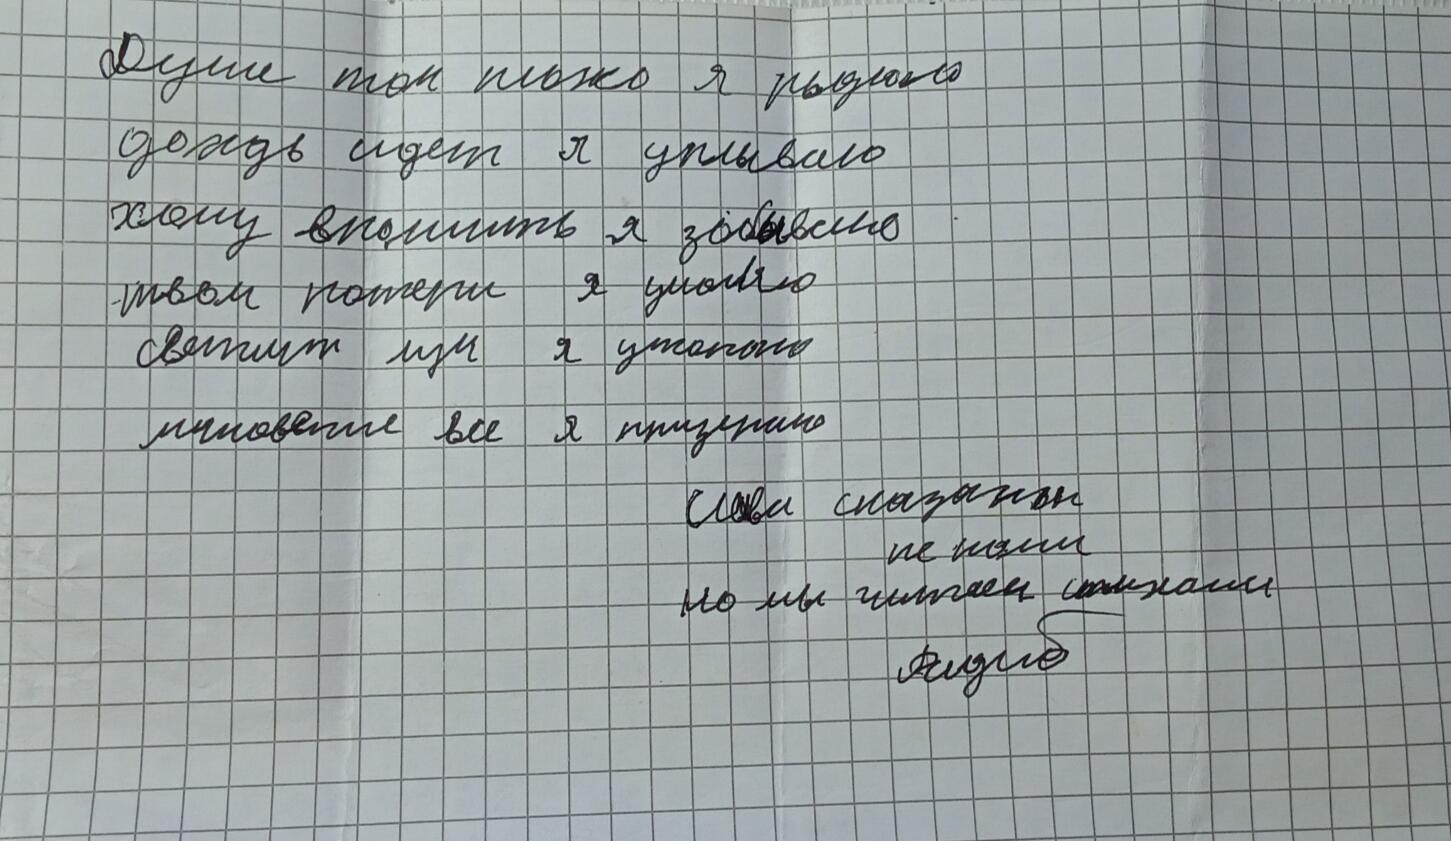 Душе так плохо я рыдаю
дождь идет я уплываю
хочу вспомнить я забываю
твои потери я умоляю
светит луч я утопаю
мгновение все я презираю
Слова сказаны
не нами
но мы читаем стихами